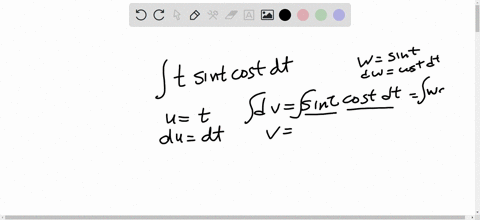 ∫ t sint cost dt
w = sint
dw = cost dt
u = t
∫dv = ∫sint cost dt = ∫w
du = dt
v =